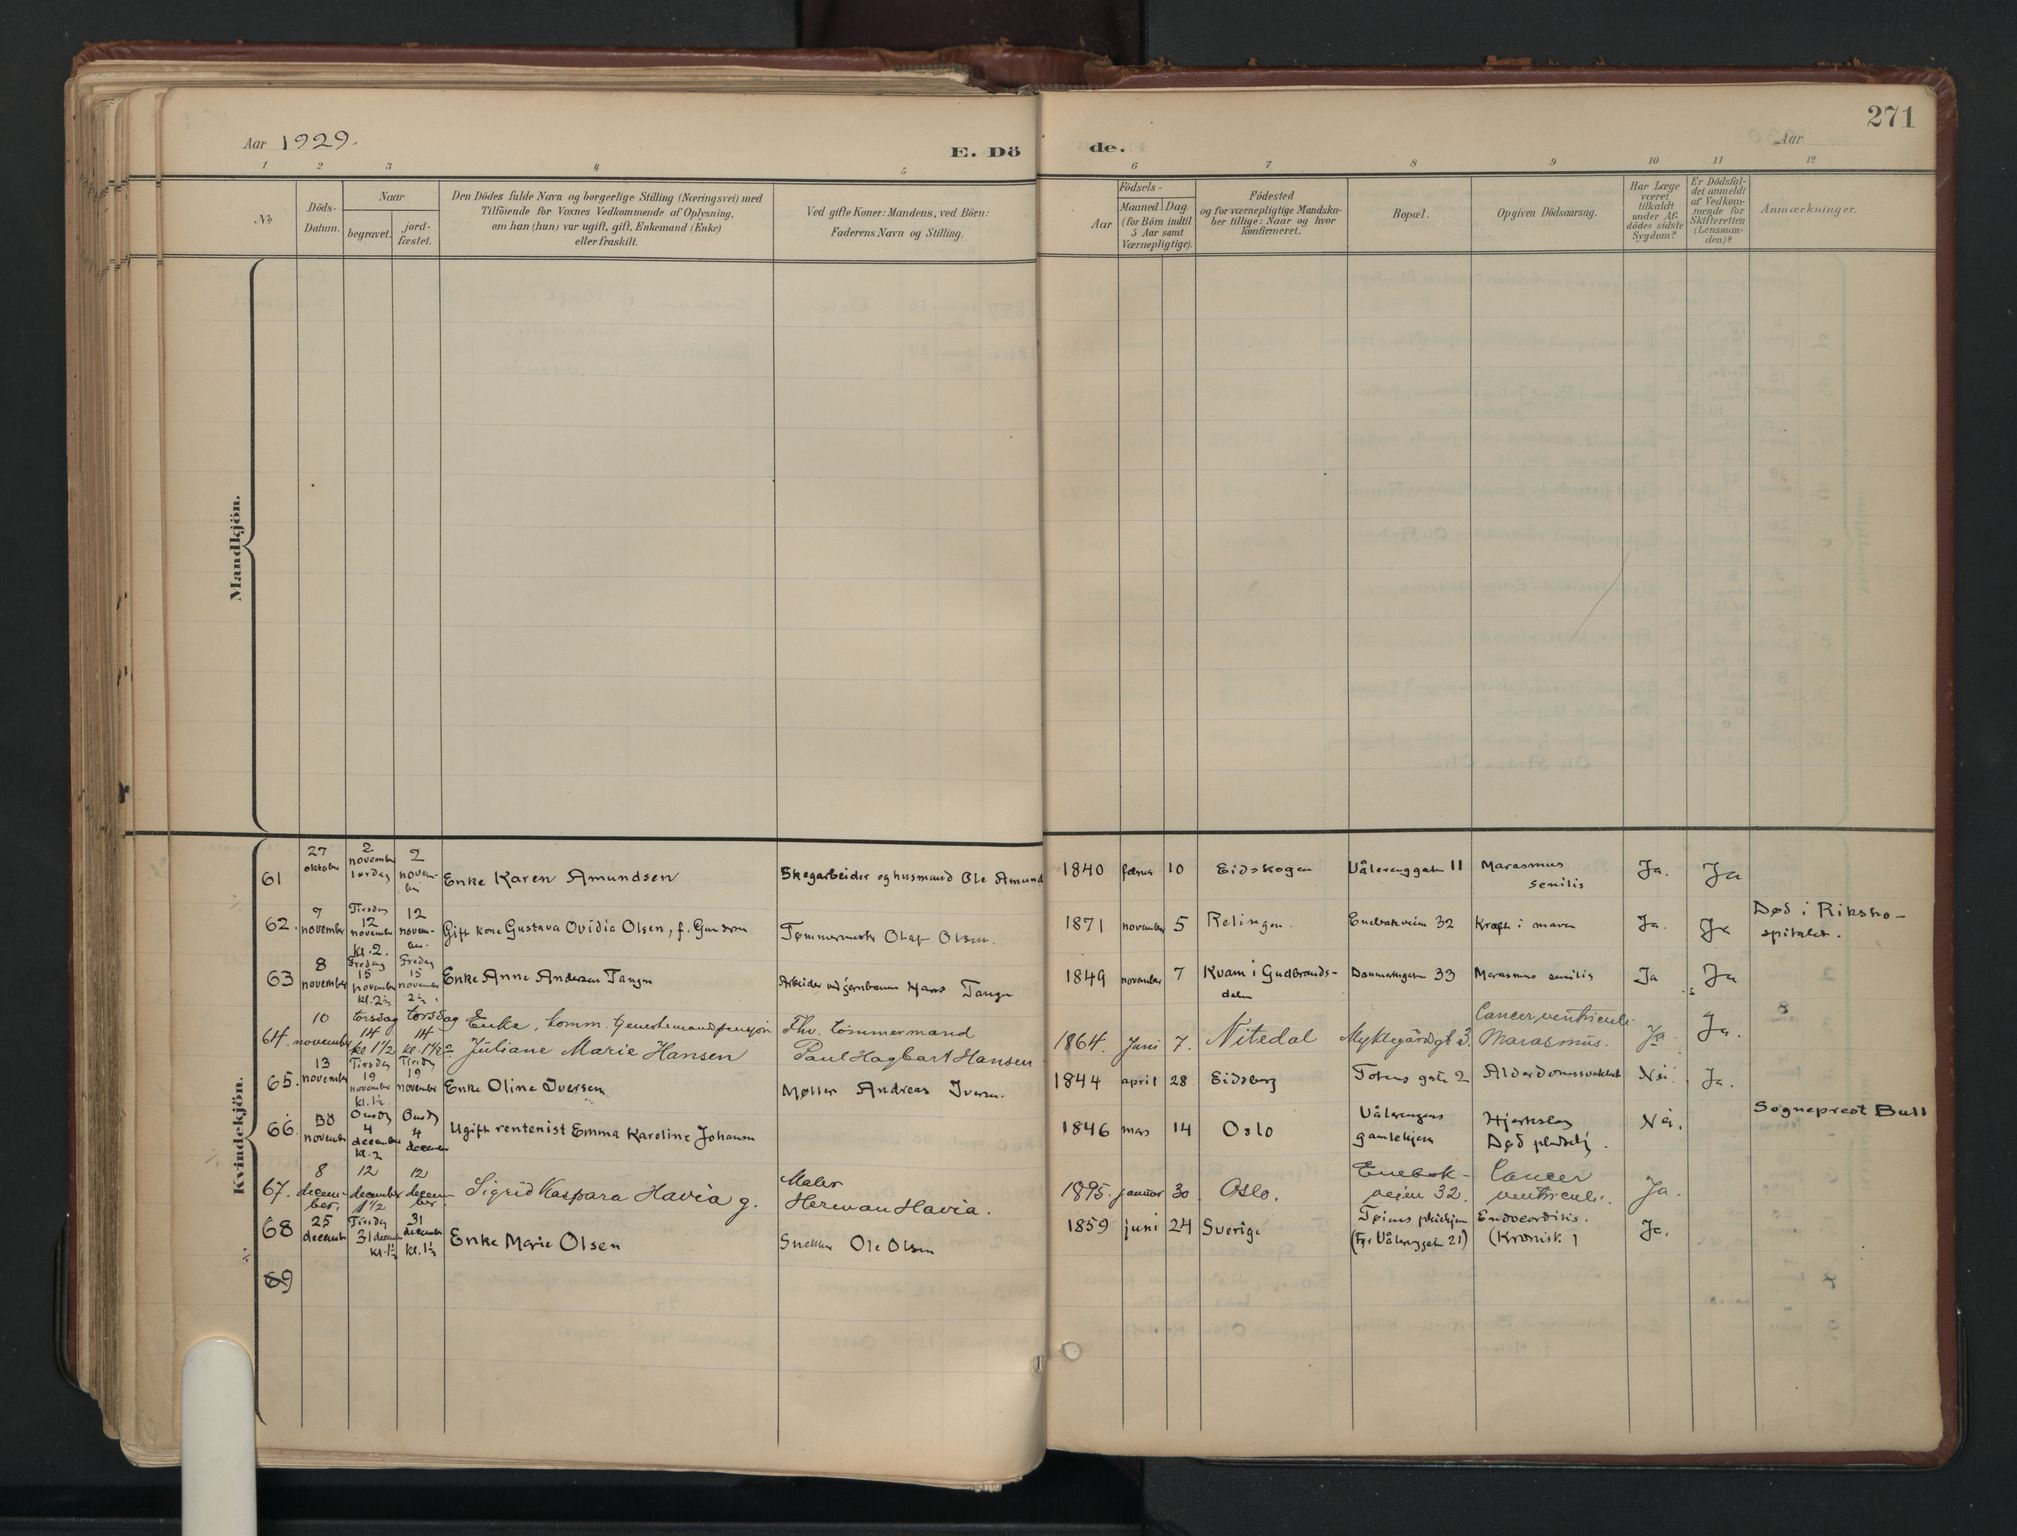 Aar 1929.
E. Dö
de.
271
Aar
1 2 3 4 5 6 7 8 9 10 11 12
No
Döds-
Datum.
Naar
begravet.
jord-
fæstet.
Den Dödes fulde Navn og borgerlige Stilling (Næringsvei) med
Tilföiende for Voxnes Vedkommende af Oplysning,
om han (hun) var ugift, gift, Enkemand (Enke)
eller fraskilt.
Ved gifte Koner: Mandens, ved Börn:
Faderens Navn og Stilling.
Födsels-
Aar
Maaned Dag.
(for Börn indtil
5 Aar samt
Værnepligtige).
Födested
og for værnepligtige Mandska-
ber tillige: Naar og hvor
konfirmeret.
Bopæl.
Opgiven Dödsaarsag.
Har Læge
været
tilkaldt
under Af-
dödes sidste
Sygdom?
Er Dödsfal-
det anmeldt
af Vedkom-
mende for
Skifteretten
(Lensman-
den)?
Anmærkninger.
Mandkjön.
Kvindekjön.
61 27 oktober 2 november lørdag 2 novem-ber Enke Karen Amundsen Skogarbeider og husmand Ole Amund 1840 februar 10 Eidskogen Vålerenggaten 11 Marasmus senilis Ja. Ja
62. 9 november Tirsdag 12 november kl. 2. 12 novem-ber. Gift kone Gustava Ovidia Olsen, f. Gundersen Tømmermester Olaf Olsen. 1871 november 5 Relingen. Enebakveien 32 Kræft i maven Ja. Ja Død i Riksho-spitalet.
63 8 november Fredag 15 november kl. 2½ Fredag 15 november 2½ Enke Anne Andersen Tangen Arbeider ved jernbanen Hans Tangen 1849 november 7 Kvam i Gudbrands-dalen Danmarksgaten 33 Marasmus senilis Ja Ja
64. 10 november torsdag 14 kl 1½ torsdag 14 kl. 1½ Enke, komm. tjenestemandspensjon Juliane Marie Hansen Fhv. tømmermand Paul Hagbart Hansen 1864. Juni 7. Nitedal Myklegårdgt 3. Cancer ventriculi. Marasmus. Ja. Ja.
65. 13 november Tirsdag 19 november kl. 1½ Tirsdag 19 november Enke Oline Iversen Møller Andreas Iversen. 1844 april 28 Eidsberg Totens gate 2 Alderdomssvakhet Nei. Ja.
66. november Onsdag 4 december kl. 2 Onsdag 4 december Ugift rentenist Emma Karoline Johansen 1846 mars 14 Oslo Vålerengens gamlehjem Hjerteslag Død pludselig. Nei. Sogneprest Bull
67. 8 decem-ber. 12 december 1½ 12 decem-ber. Sigrid Kaspara Havia g. Maler Herman Havia. 1895. januar 30. Oslo. Enebak-veien 32. Cancer ventriculi. Ja.
68 25 december Tirsdag 31 december kl. 1½ 31 december kl. 1½ Enke Marie Olsen Snekker Ole Olsen 1859 juni 24 Sverige Tøiens pleiehjem (Før Vålerenggaten 21) Endocarditis. (Kronisk) Ja.
69